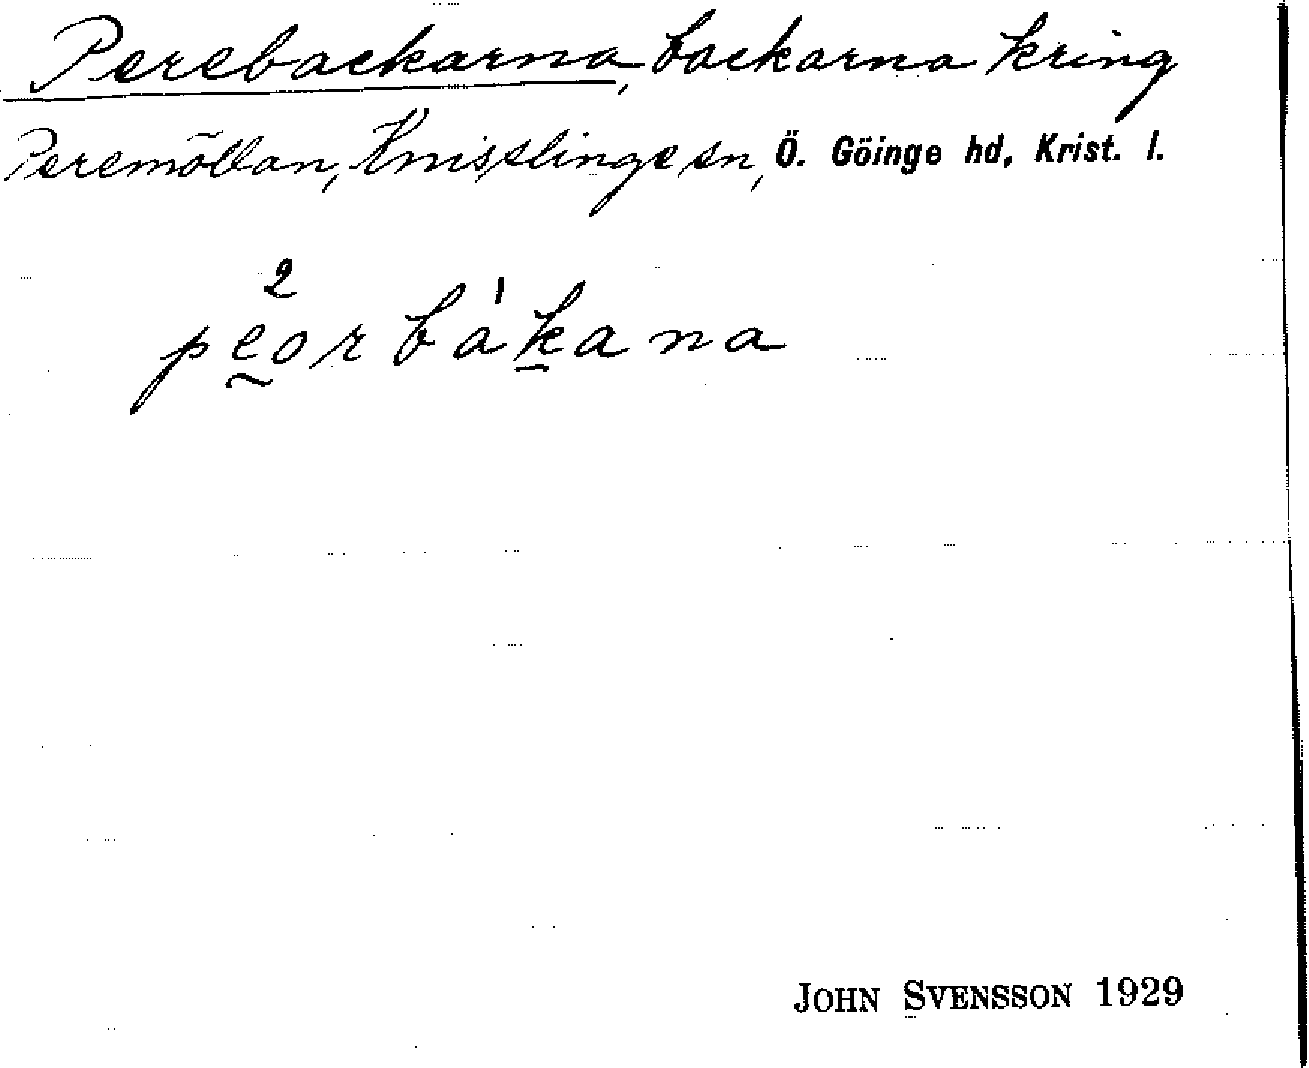 Perebackarna, backarna kring
Peremöllan, Knisslinge sn, Ö. Göinge hd, Krist. l.
2 ˈ
pḛorbak̲ana
JOHN SVENSSON 1929